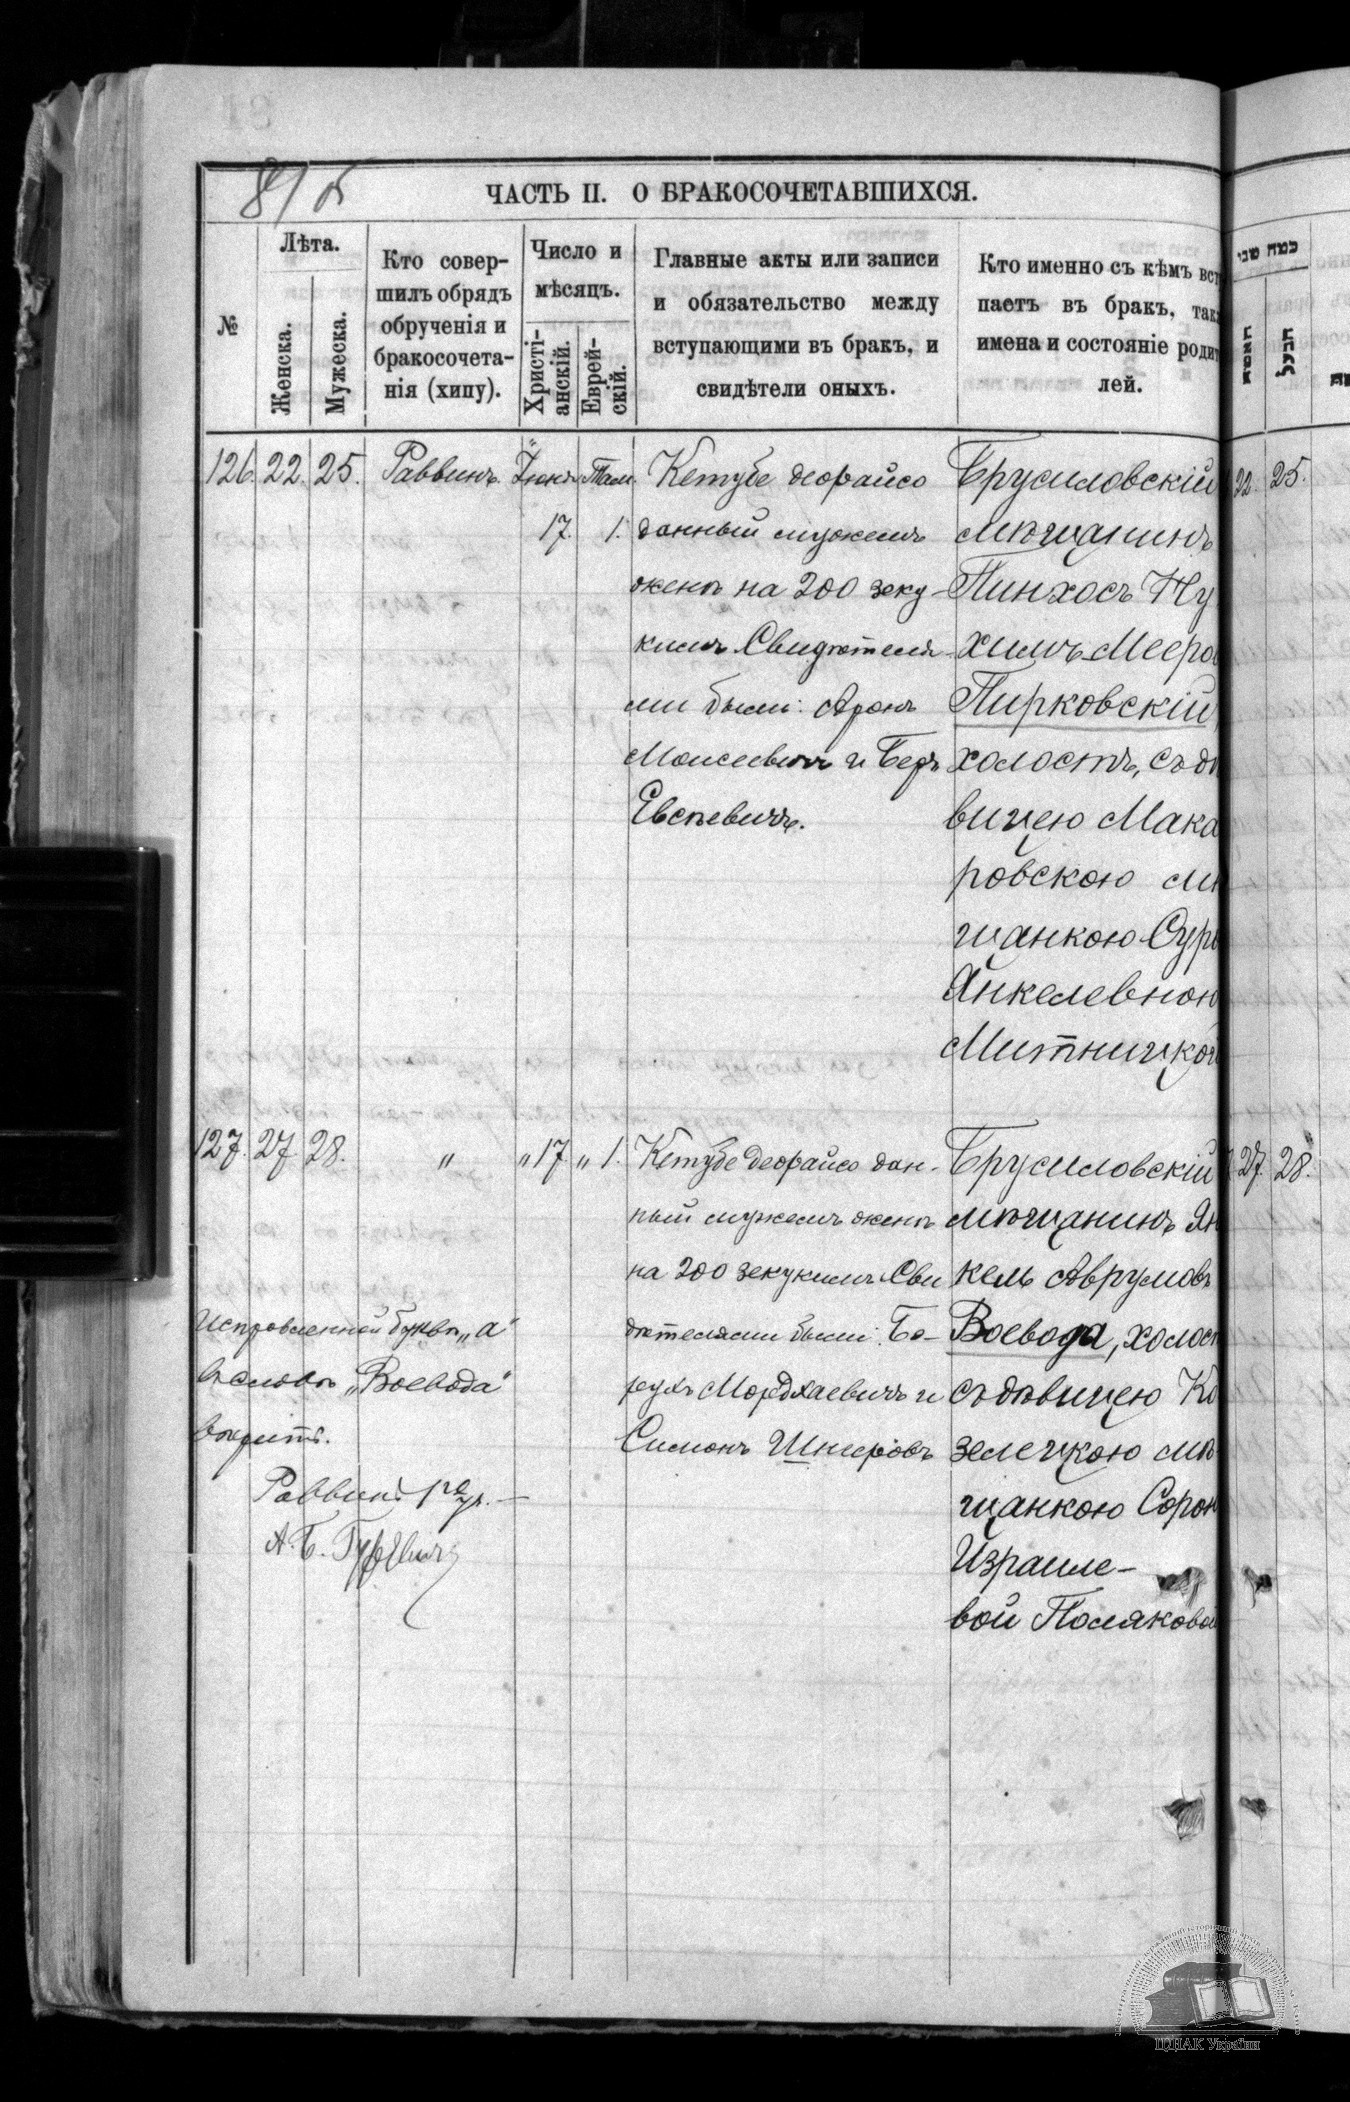 ЧАСТЬ II. О БРАКОСОЧЕТАВШИХСЯ.
№
Лѣта.
Женска.
Мужеска.
Кто совер-
шилъ обрядъ
обрученія и
бракосочета-
нія (хипу).
Число и
мѣсяцъ.
Христі-
анскій.
Еврей-
скій.
Главные акты или записи
и обязательство между
вступающими въ бракъ, и
свидѣтели оныхъ.
Кто именно съ кѣмъ вст
паетъ въ бракъ, так
имена и состояніе родит
лей.
כמה שני
האשה
הבעל
126. 22. 25. Раввинъ. Іюнь Там.
17. 1.
Кетубе деорайсо
данный мужемъ
женѣ на 200 зеку-
кимъ Свидѣтеля-
ми были: Аронъ
Моисеевичъ и Беръ
Евсѣевичъ.
Брусиловскій
мѣщанинъ
Пинхосъ Ну
химъ Мееров
Пирковскій,
холостъ, съ дѣ
вицею Мака
ровскою мѣ
щанкою Сурою
Янкелевною
Митницкой
22. 25.
127. 27. 28. " " 17 " 1.
Кетубе деорайсо дан-
ный мужемъ женѣ
на 200 зекукимъ Сви
дѣтелями были: Бо-
рухъ Мордхаевичъ и
Симонъ Шмеровъ
Брусиловскій
мѣщанинъ Ян
кель Аврумовъ
Воевода, холост
съ дѣвицею Ко
зелецкою мѣ-
щанкою Сорою
Израиле-
вой Поляковой
27. 28.
Исправленной буквѣ „а"
въ словѣ „Воевода"
вѣрить.
Раввинъ
А. Б. Гуревичъ
ЦДІАК України